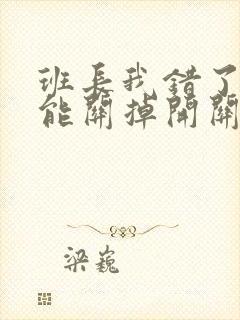 班长我错了
能關掉開關
梁巍